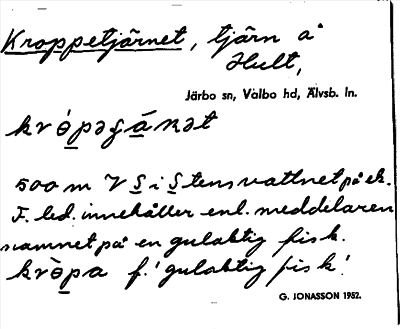 Kroppetjärnet, tjärn å
Hult,
Järbo sn, Valbo hd, Älvsb. ln.
500 m V S i Stensvattnet på ek.
F. led. innehåller enl. meddelaren
namnet på en gulaktig fisk.
kròpa f. 'gulaktig fisk'.
G. JONASSON 1952.